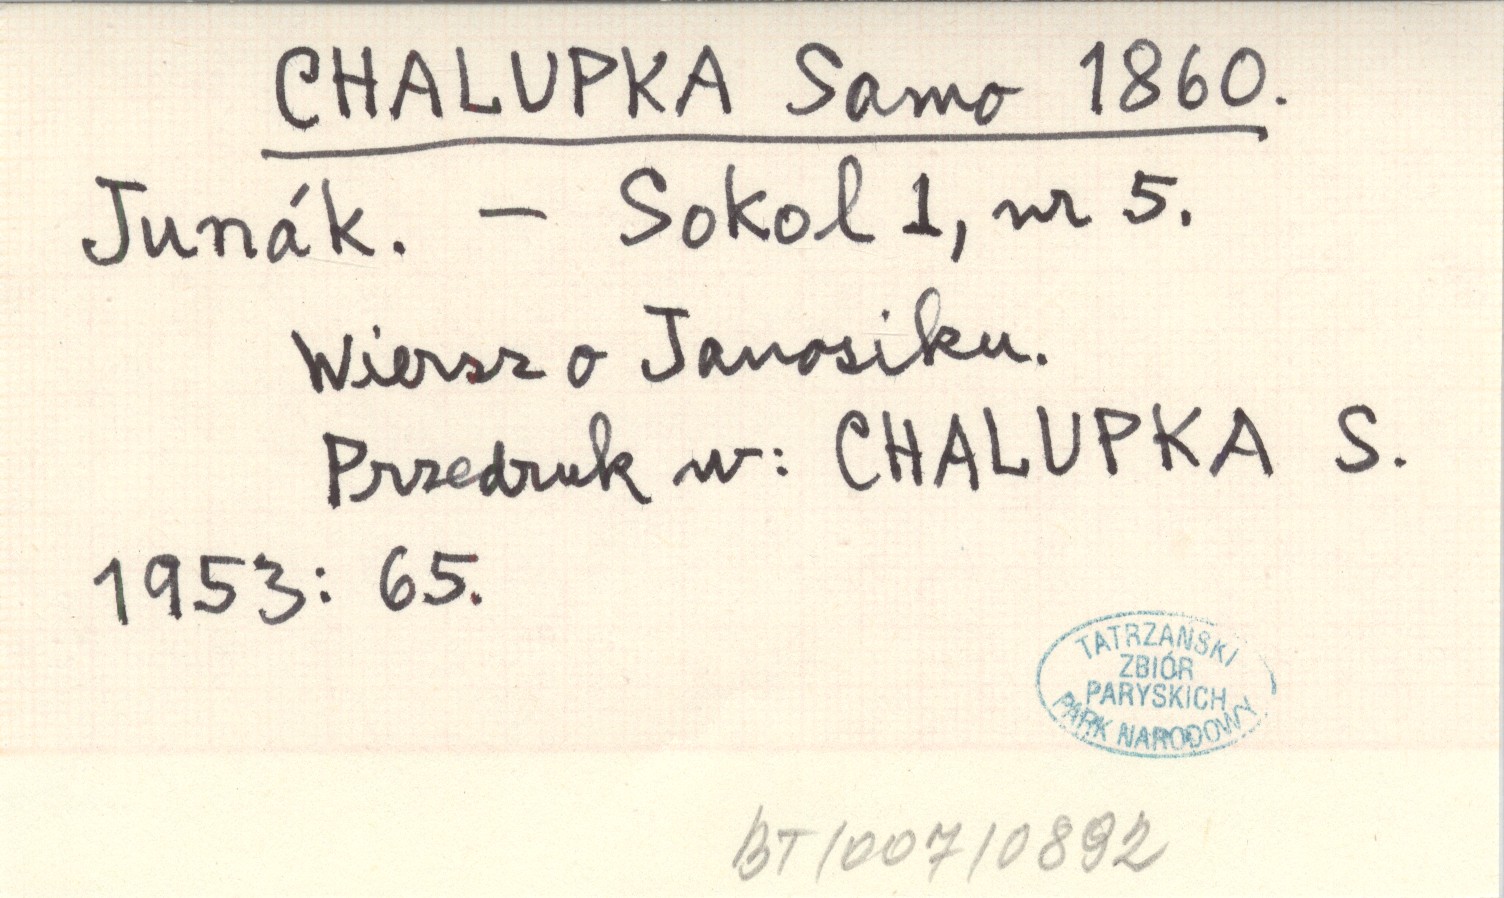 CHALUPKA Samo 1860.
Junák. – Sokol 1, nr 5.
Wiersz o Janosiku.
Przedruk w: CHALUPKA S.
1953: 65.
TATRZAŃSKI
ZBIÓR
PARYSKICH
PARK NARODOWY
BT/007/0892